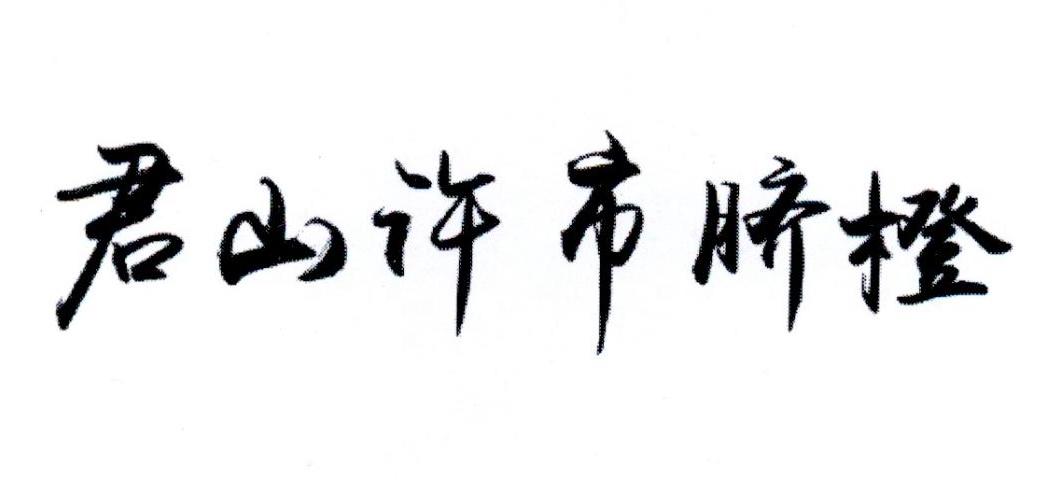 君山许市脐橙